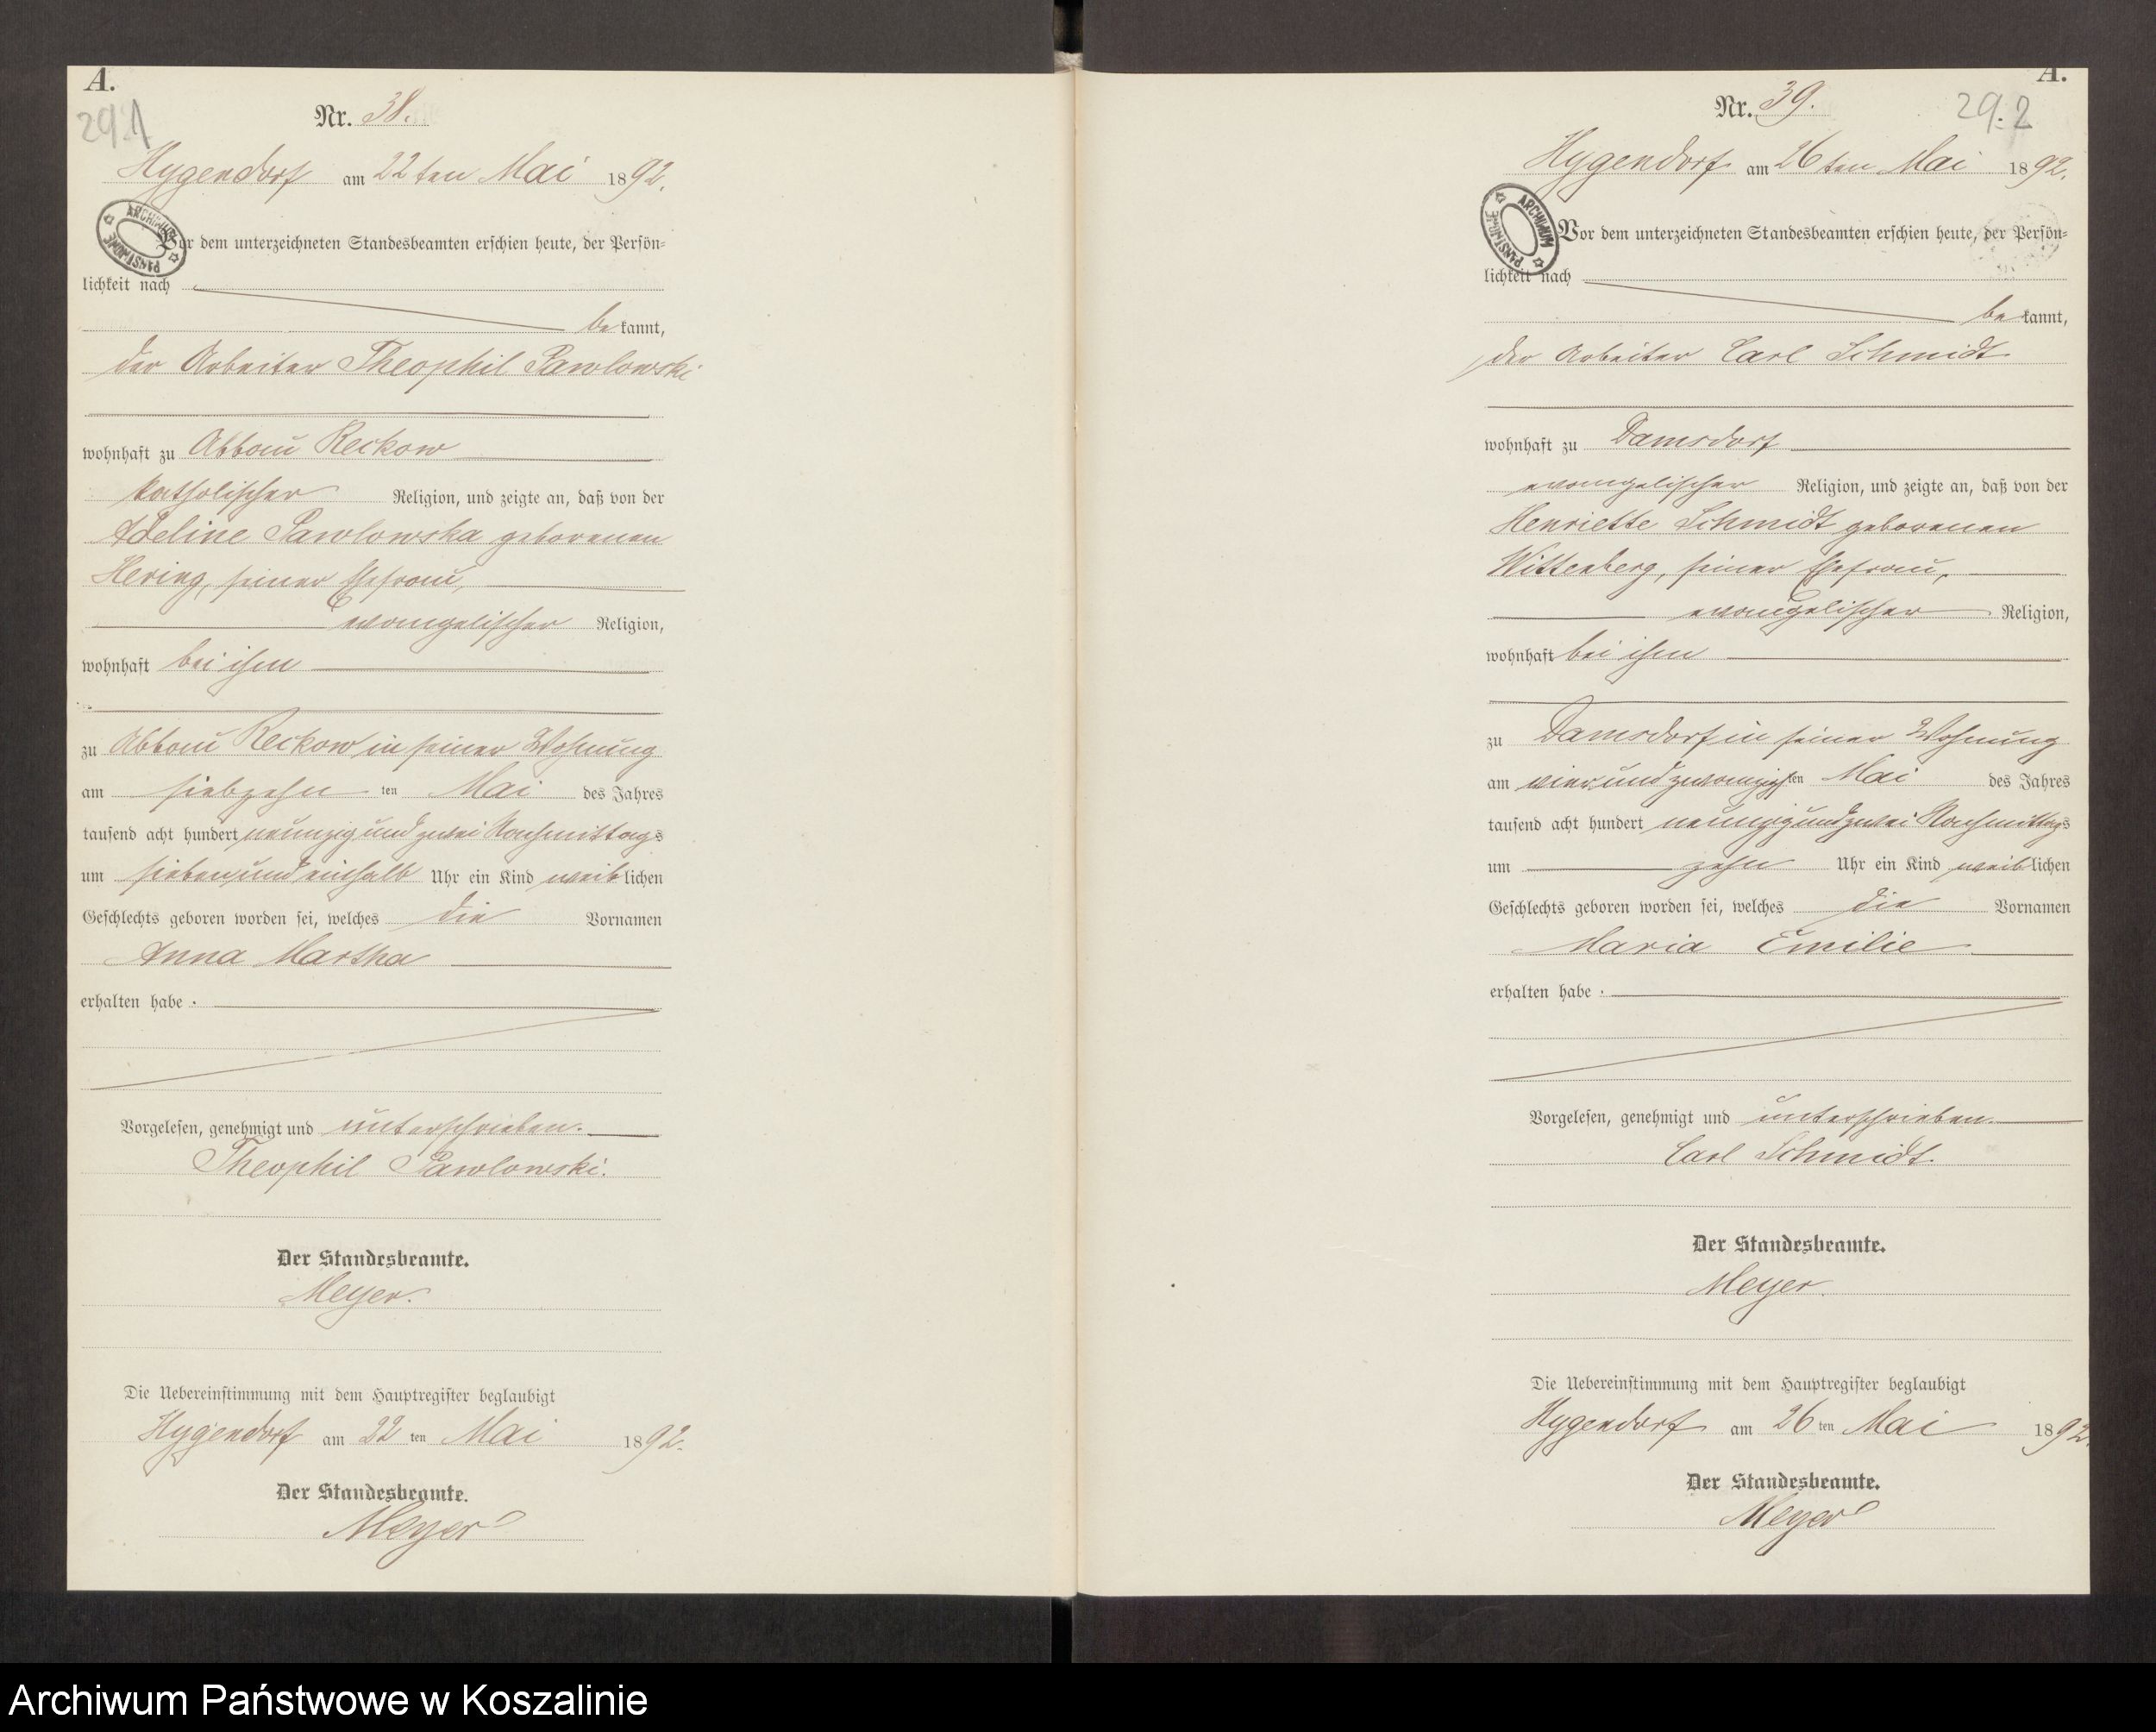 A.
291
Nr. 38.
Hygendorf am 22ten Mai 1892.
Vor dem unterzeichneten Standesbeamten erschien heute, der Persön=
lichkeit nach
bekannt,
der Arbeiter Theophil Pawlowski
wohnhaft zu Abbau Reckow
katholischer Religion, und zeigte an, daß von der
Adeline Pawlowska geborenen
Hering, seiner Ehefrau,
evangelischer Religion,
wohnhaft bei ihm
zu Abbau Reckow in seiner Wohnung
am siebzehnten Mai des Jahres
tausend acht hundert neunzig und zwei Nachmittags
um sieben und einhalb Uhr ein Kind weiblichen
Geschlechts geboren worden sei, welches die Vornamen
Anna Martha
erhalten habe.
Vorgelesen, genehmigt und unterschrieben.
Theophil Pawlowski.
Der Standesbeamte.
Meyer.
Die Uebereinstimmung mit dem Hauptregister beglaubigt
Hygendorf am 22ten Mai 1892.
Der Standesbeamte.
Meyer
ARCHIWUM PAŃSTWOWE
A.
292
Nr. 39.
Hygendorf am 26ten Mai 1892.
Vor dem unterzeichneten Standesbeamten erschien heute, der Persön=
lichkeit nach
bekannt,
der Arbeiter Carl Schmidt
wohnhaft zu Damsdorf
evangelischer Religion, und zeigte an, daß von der
Henriette Schmidt geborenen
Wittenberg, seiner Ehefrau,
evangelischer Religion,
wohnhaft bei ihm
zu Damsdorf in seiner Wohnung
am vierundzwanzigsten Mai des Jahres
tausend acht hundert neunzig und zwei Nachmittags
um zehn Uhr ein Kind weiblichen
Geschlechts geboren worden sei, welches die Vornamen
Maria Emilie
erhalten habe.
Vorgelesen, genehmigt und unterschrieben.
Carl Schmidt.
Der Standesbeamte.
Meyer.
Die Uebereinstimmung mit dem Hauptregister beglaubigt
Hygendorf am 26ten Mai 1892.
Der Standesbeamte.
Meyer
ARCHIWUM PAŃSTWOWE
Archiwum Państwowe w Koszalinie